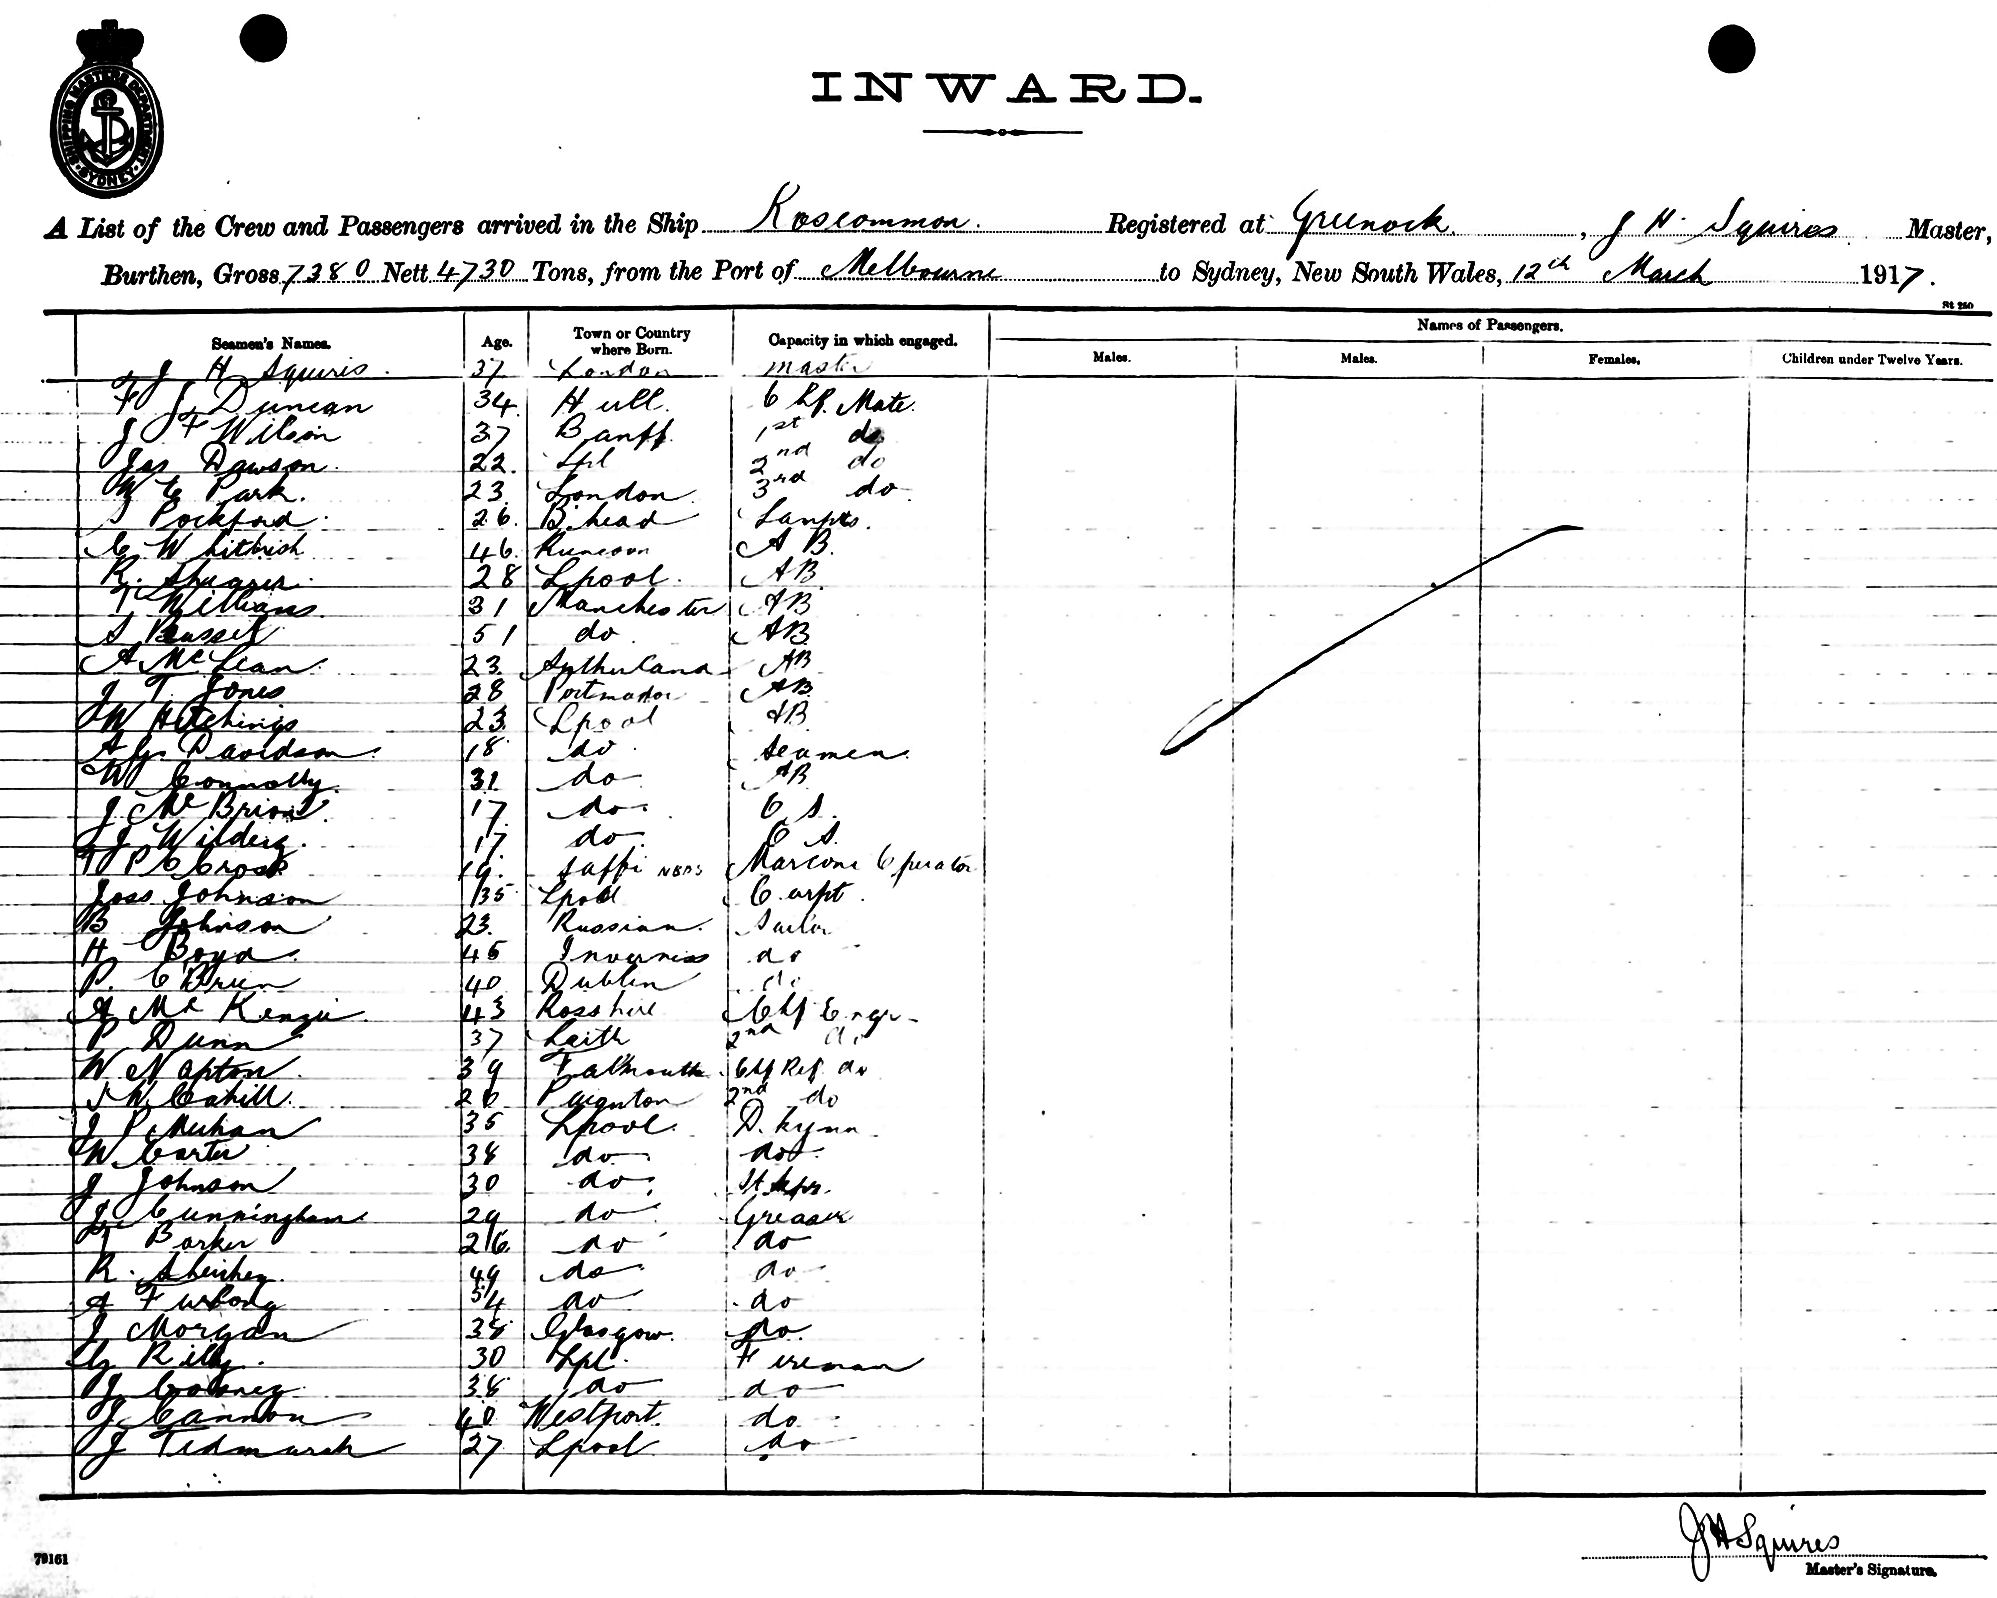 SHIPPING MASTERS DEPARTMENT SYDNEY
INWARD.
A List of the Crew and Passengers arrived in the Ship Roscommon. Registered at Greenock, J H Squires Master,
Burthen, Gross 7380 Nett 4730 Tons, from the Port of Melbourne to Sydney, New South Wales, 12th March 1917.
St 250
Seamen's Names. Age. Town or Country where Born. Capacity in which engaged. Names of Passengers.
Males. Males. Females. Children under Twelve Years.
J H Squires. 37 London master
F J Duncan 34 Hull. Mate.
J F Wilson 37 Banff. 1st do
Jas Dawson. 22. Lpl 2nd do
W C Park. 23 London 3rd do
Pockford. 26. B'head Lampts.
46. Runcorn A B.
R. Shearer. 28 Lpool. AB
T Williams. 31 Manchester AB
S Bassett 51 do AB
A McLean. 23. Sutherland AB
J T. Jones 28 Portmador AB
J W Hitchings 23. Lpool AB
A G. Davidson. 18 do Seamen.
W Connolly. 31 do AB
J McBrion. 17 do O S.
J Wilderg. 17 do. O S.
P C Crook 19. Marconi Operator
Joss Johnson 35 Lpool Carpt.
B Johnson 23. Russian. Sailor
H Boyd. 45 Inverness do
P. O'Brien 40 Dublin do
A McKenzie. 43 Rosshire Chf Engr.
P Dunn 37 Leith 2nd do
W. Napton. 39 Falmouth. Chf Ref. do
J W Cahill. 26 Paignton 2nd do
J P Meehan 35 Lpool. D. kymn
W Carter 38 do do
J Johnson 30 do St kpr.
J Cunningham 29 do Greaser
T Barker 26. do do
R. 49 do do
A Furlong 54 do do
J Morgan 38 Glasgow. do.
G Rilly. 30 Lpl. Fireman
J 38 do do
J Cannon 40 Westport. do
J Tidmarsh 27 Lpool do
J H Squires
79161
Master's Signature.